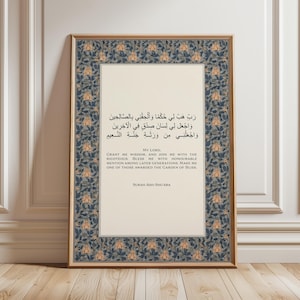 رَبِّ هَبْ لِي حُكْمًا وَأَلْحِقْنِي بِالصَّالِحِينَ
وَاجْعَل لِّي لِسَانَ صِدْقٍ فِي الْآخِرِينَ
وَاجْعَلْنِي مِن وَرَثَةِ جَنَّةِ النَّعِيمِ
My Lord,
Grant me wisdom, and join me with the
righteous. Bless me with honourable
mention among later generations. Make me
one of those awarded the Garden of Bliss.
Surah Ash-Shuara